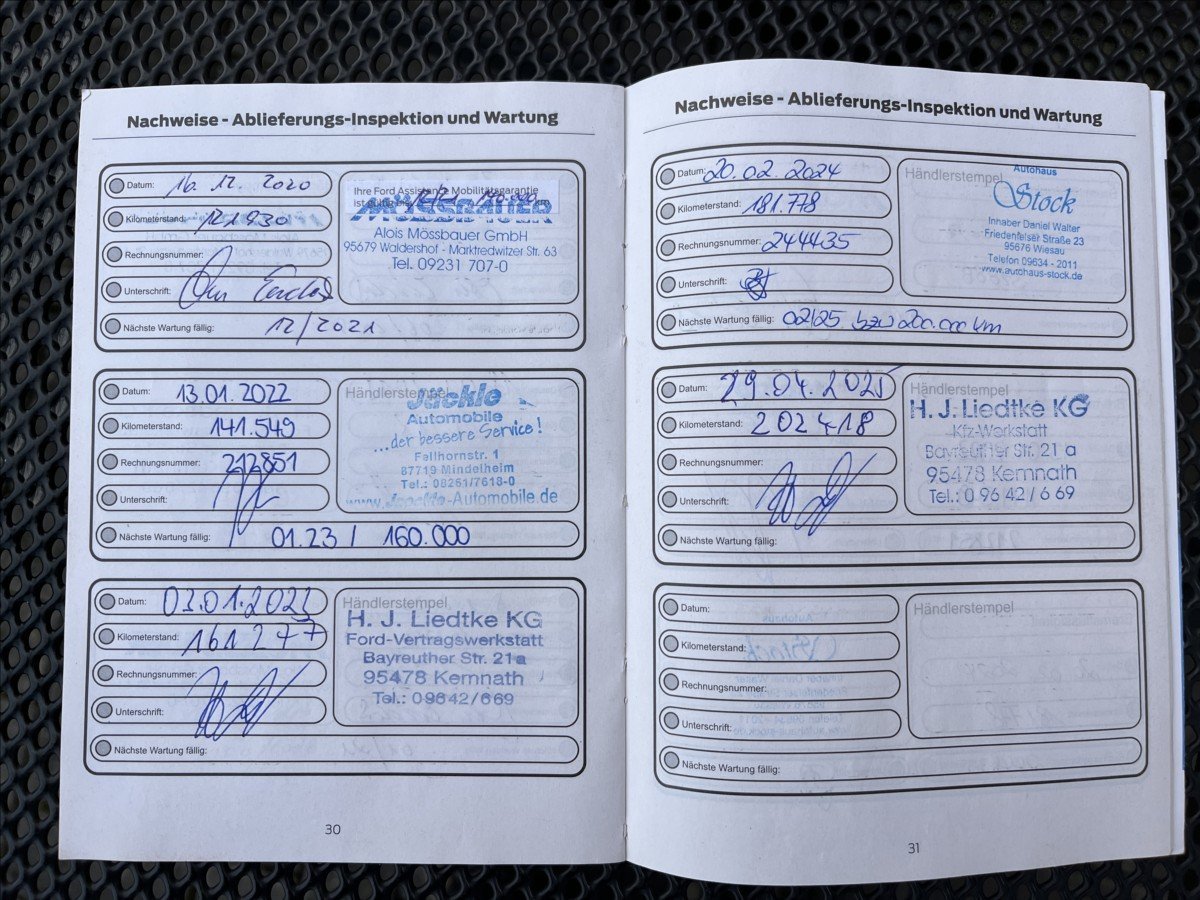 Nachweise - Ablieferungs-Inspektion und Wartung
Datum: 16.12.2020
Kilometerstand: 121.930
Rechnungsnummer:
Unterschrift:
Nächste Wartung fällig: 12/2021
Ihre Ford Assistance Mobilitätsgarantie
ist gültig bis 12/21 140.000 km
MÖSSBAUER
Alois Mössbauer GmbH
95679 Waldershof - Marktredwitzer Str. 63
Tel. 09231 707-0
Datum: 13.01.2022
Kilometerstand: 141.549
Rechnungsnummer: 212851
Unterschrift:
Nächste Wartung fällig: 01.23 / 160.000
Händlerstempel
Jäckle
Automobile
...der bessere Service!
Fellhornstr. 1
87719 Mindelheim
Tel.: 08261/7618-0
www.Jaeckle-Automobile.de
Datum: 03.01.2023
Kilometerstand: 161277
Rechnungsnummer:
Unterschrift:
Nächste Wartung fällig:
Händlerstempel
H. J. Liedtke KG
Ford-Vertragswerkstatt
Bayreuther Str. 21 a
95478 Kemnath
Tel.: 0 96 42 / 6 69
30
Nachweise - Ablieferungs-Inspektion und Wartung
Datum: 20.02.2024
Kilometerstand: 181.778
Rechnungsnummer: 244435
Unterschrift:
Nächste Wartung fällig: 02/25 bzw 200.000 km
Händlerstempel
Autohaus
Stock
Inhaber Daniel Walter
Friedenfelser Straße 23
95676 Wiesau
Telefon 09634 - 2011
www.autohaus-stock.de
Datum: 29.04.2025
Kilometerstand: 202418
Rechnungsnummer:
Unterschrift:
Nächste Wartung fällig:
Händlerstempel
H. J. Liedtke KG
Kfz-Werkstatt
Bayreuther Str. 21 a
95478 Kemnath
Tel.: 0 96 42 / 6 69
Datum:
Kilometerstand:
Rechnungsnummer:
Unterschrift:
Nächste Wartung fällig:
Händlerstempel
31